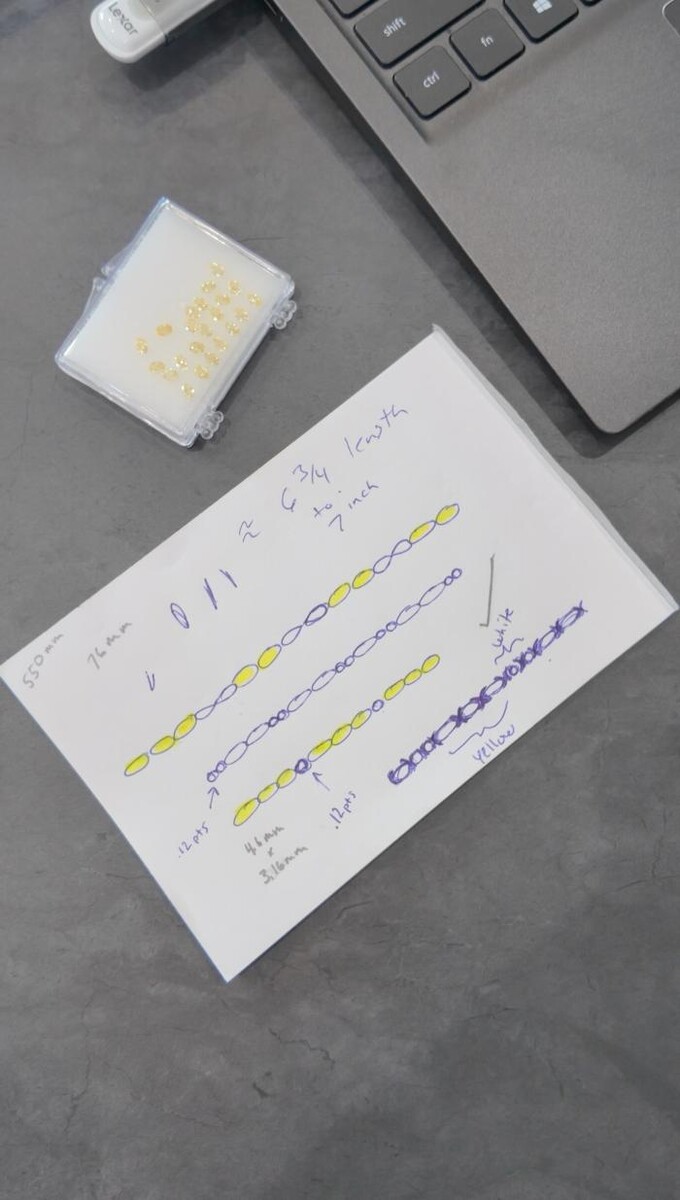 Lexar
shift
fn
ctrl
≈ 6 3/4 length
to
7 inch
550mm
76mm
white
yellow
.12pts
.12pts
4.6mm
x
3.16mm